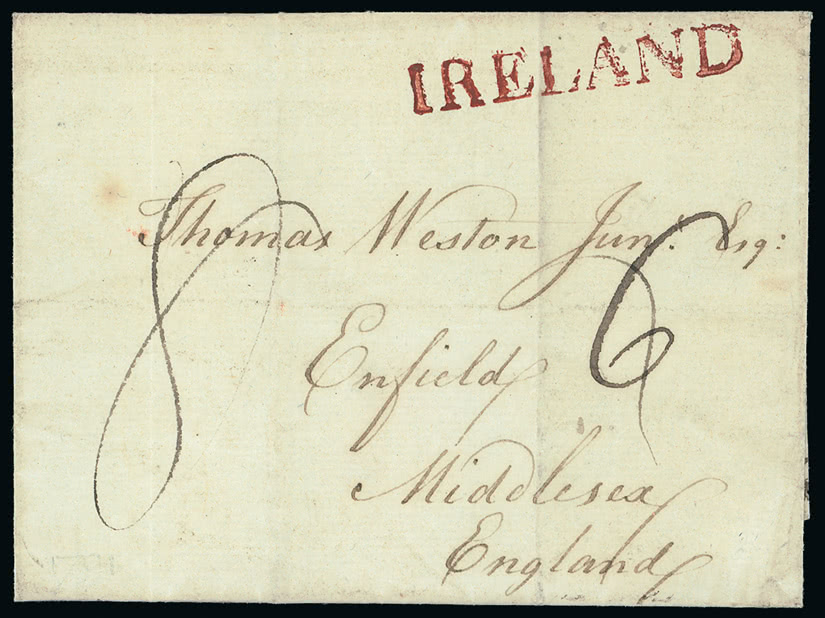 IRELAND
Thomas Weston Junr. Esq:
8
6
Enfield
Middlesex
England